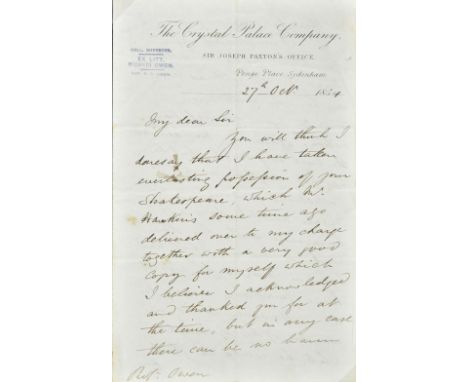 The Crystal Palace Company.
SIR JOSEPH PAXTON'S OFFICE,
Penge Place Sydenham
EX LITT.
RICARDI OWEN
27th Octr 1854
My dear Sir
You will think I
daresay that I have taken
everlasting possession of your
Shakespeare, which Mr
Hawkins some time ago
delivered over to my charge
together with a very good
Copy for myself which
I believe I acknowledged
and thanked you for at
the time, but in any case
there can be no harm
Profr. Owen